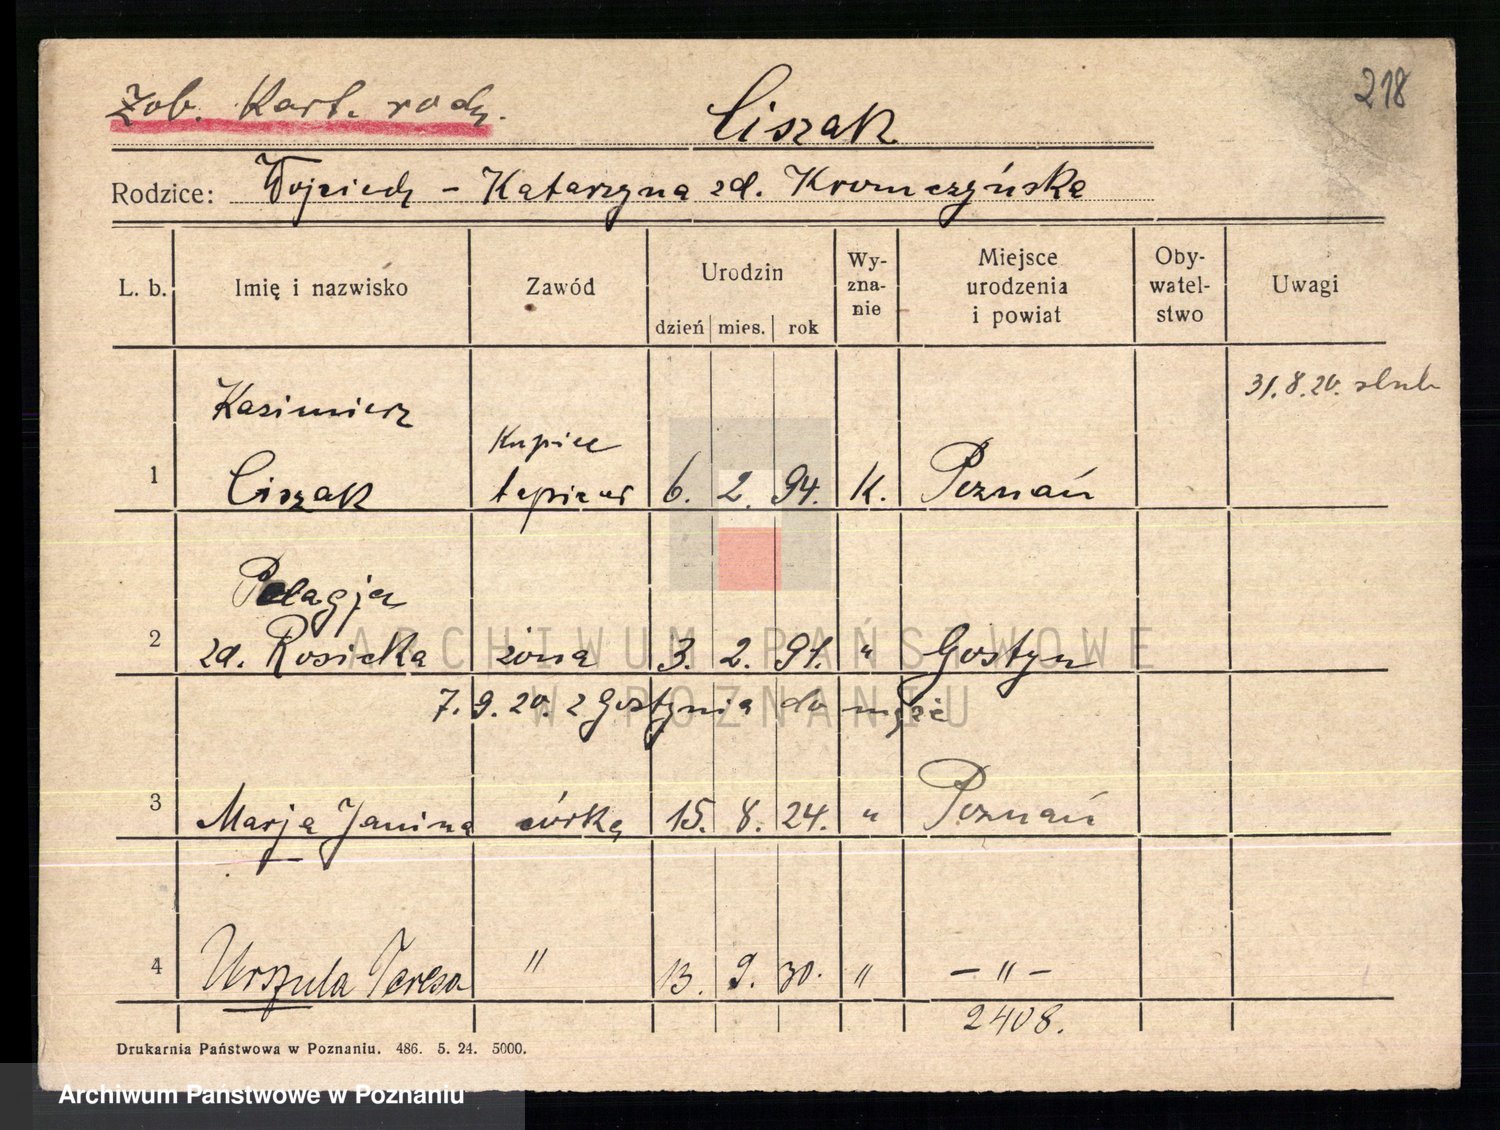 218
Zob. Kart. rodz.
Ciszak
Rodzice: Wojciech - Katarzyna zd. Kromczyńska
L. b. Imię i nazwisko Zawód Urodzin Wy-zna-nie Miejsce urodzenia i powiat Oby-watel-stwo Uwagi
dzień mies. rok
31. 8. 20. ślub
Kazimierz
Kupiec
1 Ciszak tapicer 6. 2. 94. K. Poznań
Pelagja
2 zd. Rosicka żona 3. 2. 91. " Gostyn
7. 9. 20. z Gostynia do męża
3 Marja Janina córka 15. 8. 24. " Poznań
4 Urszula Teresa " 13. 9. 30. " - " -
2408.
Drukarnia Państwowa w Poznaniu. 486. 5. 24. 5000.
ARCHIWUM PAŃSTWOWE
W POZNANIU
Archiwum Państwowe w Poznaniu